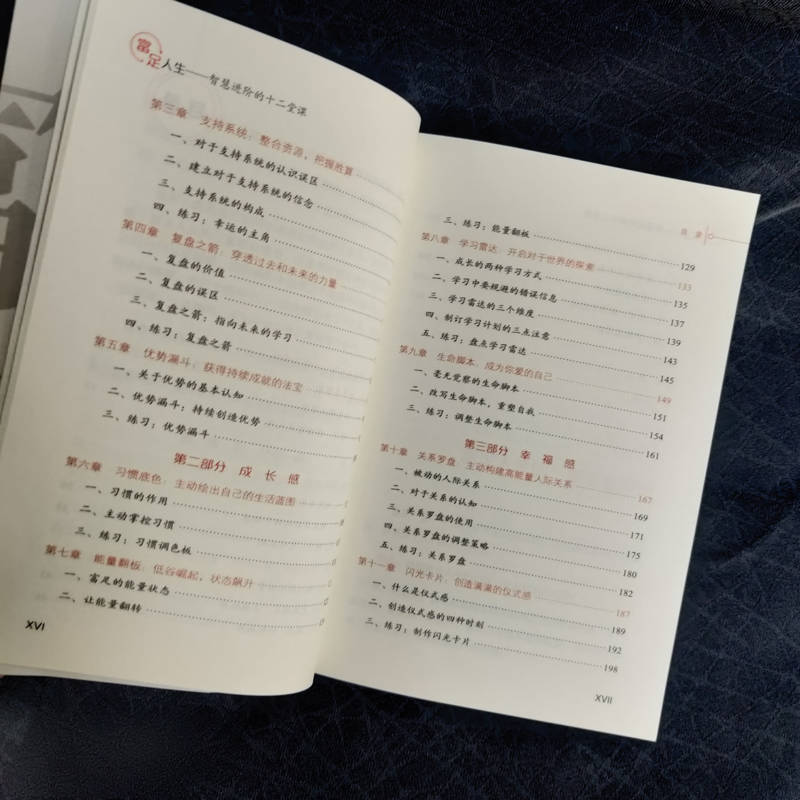 富足人生——智慧进阶的十二堂课
第三章 支持系统：整合资源，把握胜算
一、对于支持系统的认识误区
二、建立对于支持系统的信念
三、支持系统的构成
四、练习：幸运的主角
第四章 复盘之箭：穿透过去和未来的力量
一、复盘的价值
二、复盘的误区
三、复盘之箭：指向未来的学习
四、练习：复盘之箭
第五章 优势漏斗：获得持续成就的法宝
一、关于优势的基本认知
二、优势漏斗：持续创造优势
三、练习：优势漏斗
第二部分 成长感
第六章 习惯底色：主动绘出自己的生活蓝图
一、习惯的作用
二、主动掌控习惯
三、练习：习惯调色板
第七章 能量翻板：低谷崛起，状态飙升
一、富足的能量状态
二、让能量翻转
XVI
目 录
三、练习：能量翻板 129
第八章 学习雷达：开启对于世界的探索 133
一、成长的两种学习方式 135
二、学习中要规避的错误信息 137
三、学习雷达的三个维度 139
四、制订学习计划的三点注意 143
五、练习：盘点学习雷达 145
第九章 生命脚本：成为你爱的自己 149
一、毫无觉察的生命脚本 151
二、改写生命脚本，重塑自我 154
三、练习：调整生命脚本 161
第三部分 幸福感
第十章 关系罗盘：主动构建高能量人际关系 167
一、被动的人际关系 169
二、对于关系的认知 171
三、关系罗盘的使用 175
四、关系罗盘的调整策略 180
五、练习：关系罗盘 182
第十一章 闪光卡片：创造满满的仪式感 187
一、什么是仪式感 189
二、创造仪式感的四种时刻 192
三、练习：制作闪光卡片 198
XVII